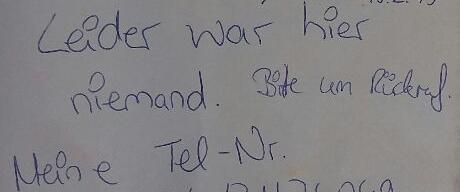 Leider war hier
niemand. Bitte um Rückruf.
Meine Tel-Nr.